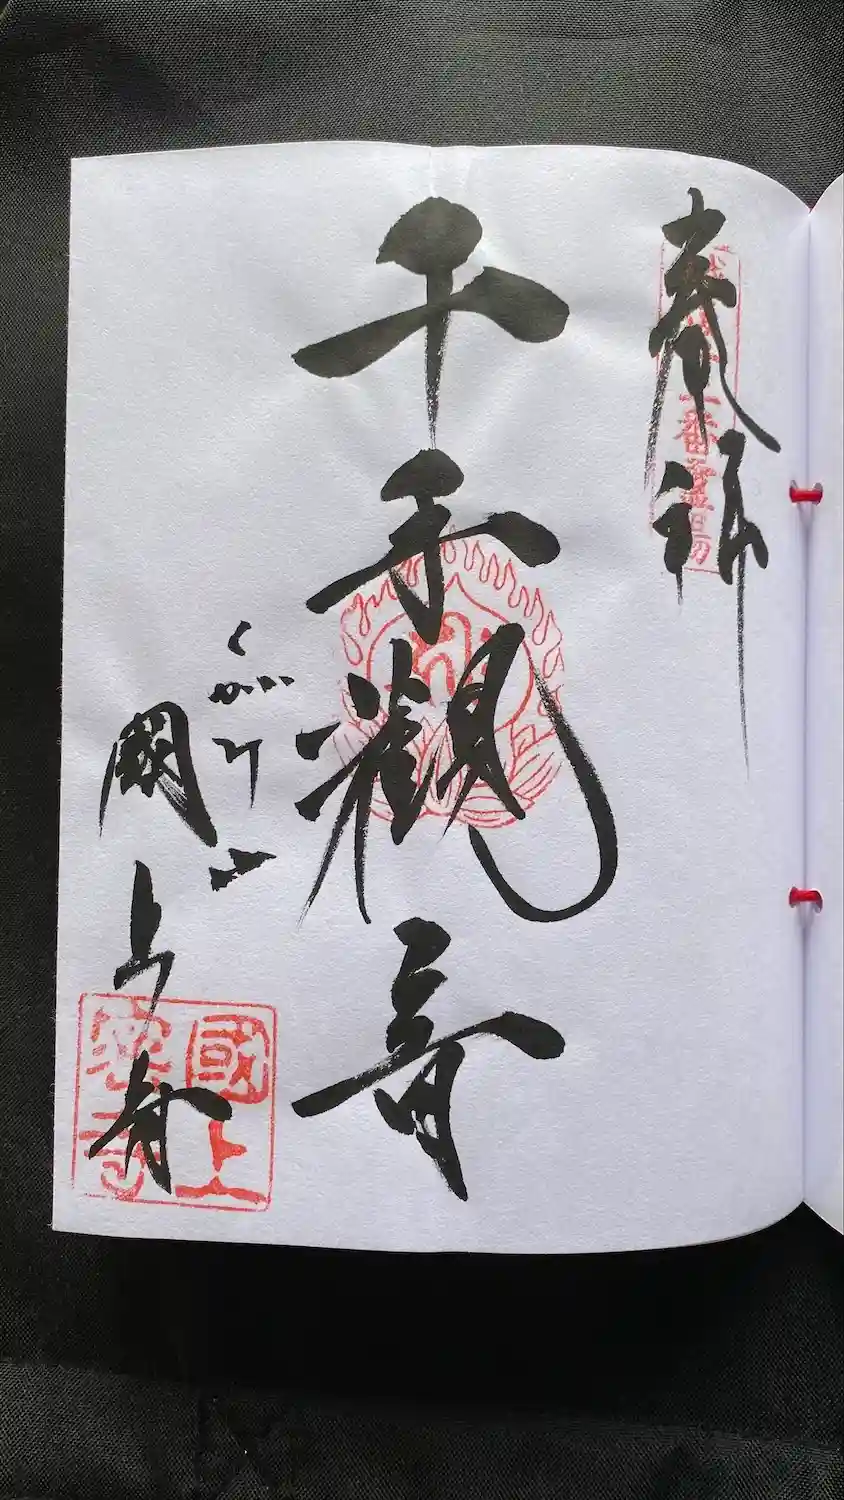 奉拝
番霊場
千手観音
くがみ山
國上寺
國上